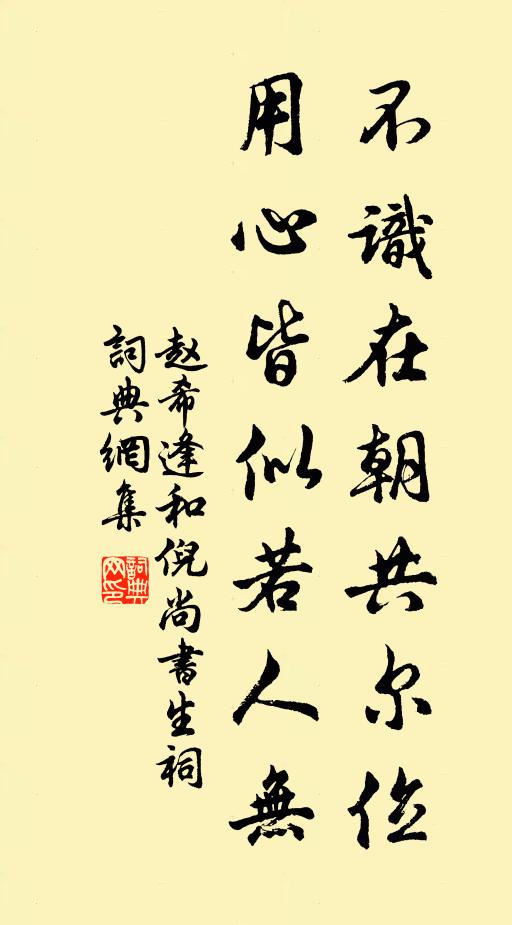 不識在朝共尔位
用心皆似若人無
赵希逢和倪尚書生祠
詞典網集
詞典
网印